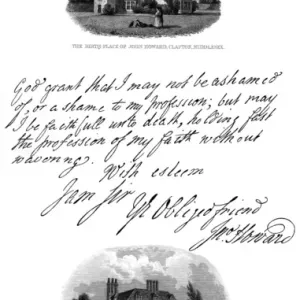 THE BIRTH PLACE OF JOHN HOWARD, CLAPTON, MIDDLESEX.
God grant that I may not be ashamed
of, or a shame to my profession; but may
I be faithfull unto death, holding fast
the profession of my faith without
wavering.
With esteem
I am Sir
Yr Obliged friend
Jno Howard